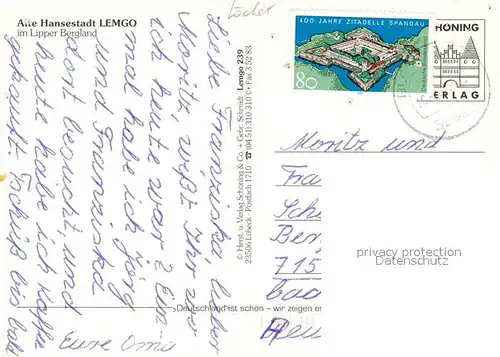 Alte Hansestadt LEMGO
im Lipper Bergland
Löcher
400 JAHRE ZITADELLE SPANDAU
80
HÖNING
ERLAG
Liebe Franziska lieber
Moritz, wißt Ihr wo
ich heute war? Ein
mal habe ich Jörg
und Franziska
besucht und
heute habe ich
gekauft. Tschüß bis bald
Eure Oma
© Herst. u. Verlag Schöning & Co. + Gebr. Schmidt Lemgo 239
23506 Lübeck · Postfach 1710 · ☎ (04 51) 310 310 · Fax 3 52 83
Moritz und
Fra
Sch
Ber
715
bad
privacy protection
Datenschutz
„Deutschland ist schön – wir zeigen es